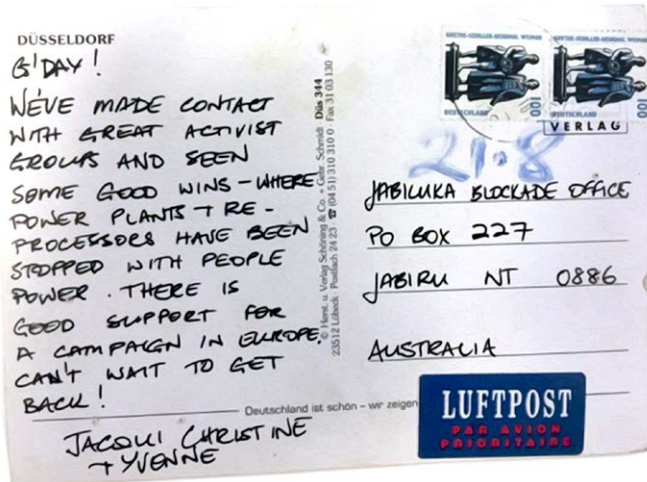 DÜSSELDORF
G'DAY!
WE'VE MADE CONTACT
WITH GREAT ACTIVIST
GROUPS AND SEEN
SOME GOOD WINS - WHERE
POWER PLANTS + RE-
PROCESSORS HAVE BEEN
STOPPED WITH PEOPLE
POWER. THERE IS
GOOD SUPPORT FOR
A CAMPAIGN IN EUROPE!
CAN'T WAIT TO GET
BACK!
JACQUI CHRISTINE
+ YVONNE
© Herst. u. Verlag Schöning & Co. + Gebr. Schmidt Düs 344
23512 Lübeck · Postfach 24 23 · ☎ (04 51) 310 310 0 · Fax 31 03 130
Deutschland ist schön – wir zeigen
GOETHE-SCHILLER-DENKMAL WEIMAR
100
DEUTSCHLAND
GOETHE-SCHILLER-DENKMAL WEIMAR
100
DEUTSCHLAND
VERLAG
21.8
JABILUKA BLOCKADE OFFICE
PO BOX 227
JABIRU NT 0886
AUSTRALIA
LUFTPOST
PAR AVION
PRIORITAIRE